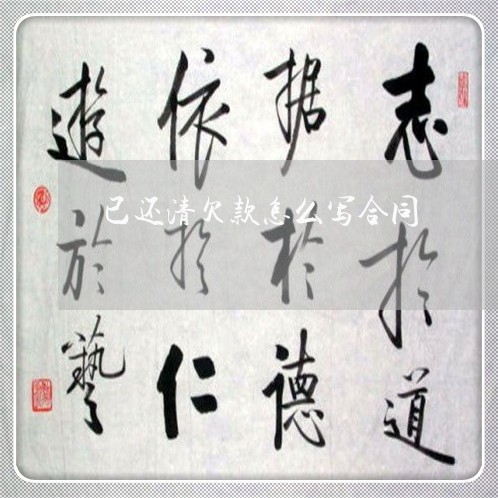 志於道
据於德
依於仁
遊於藝
已还清欠款怎么写合同